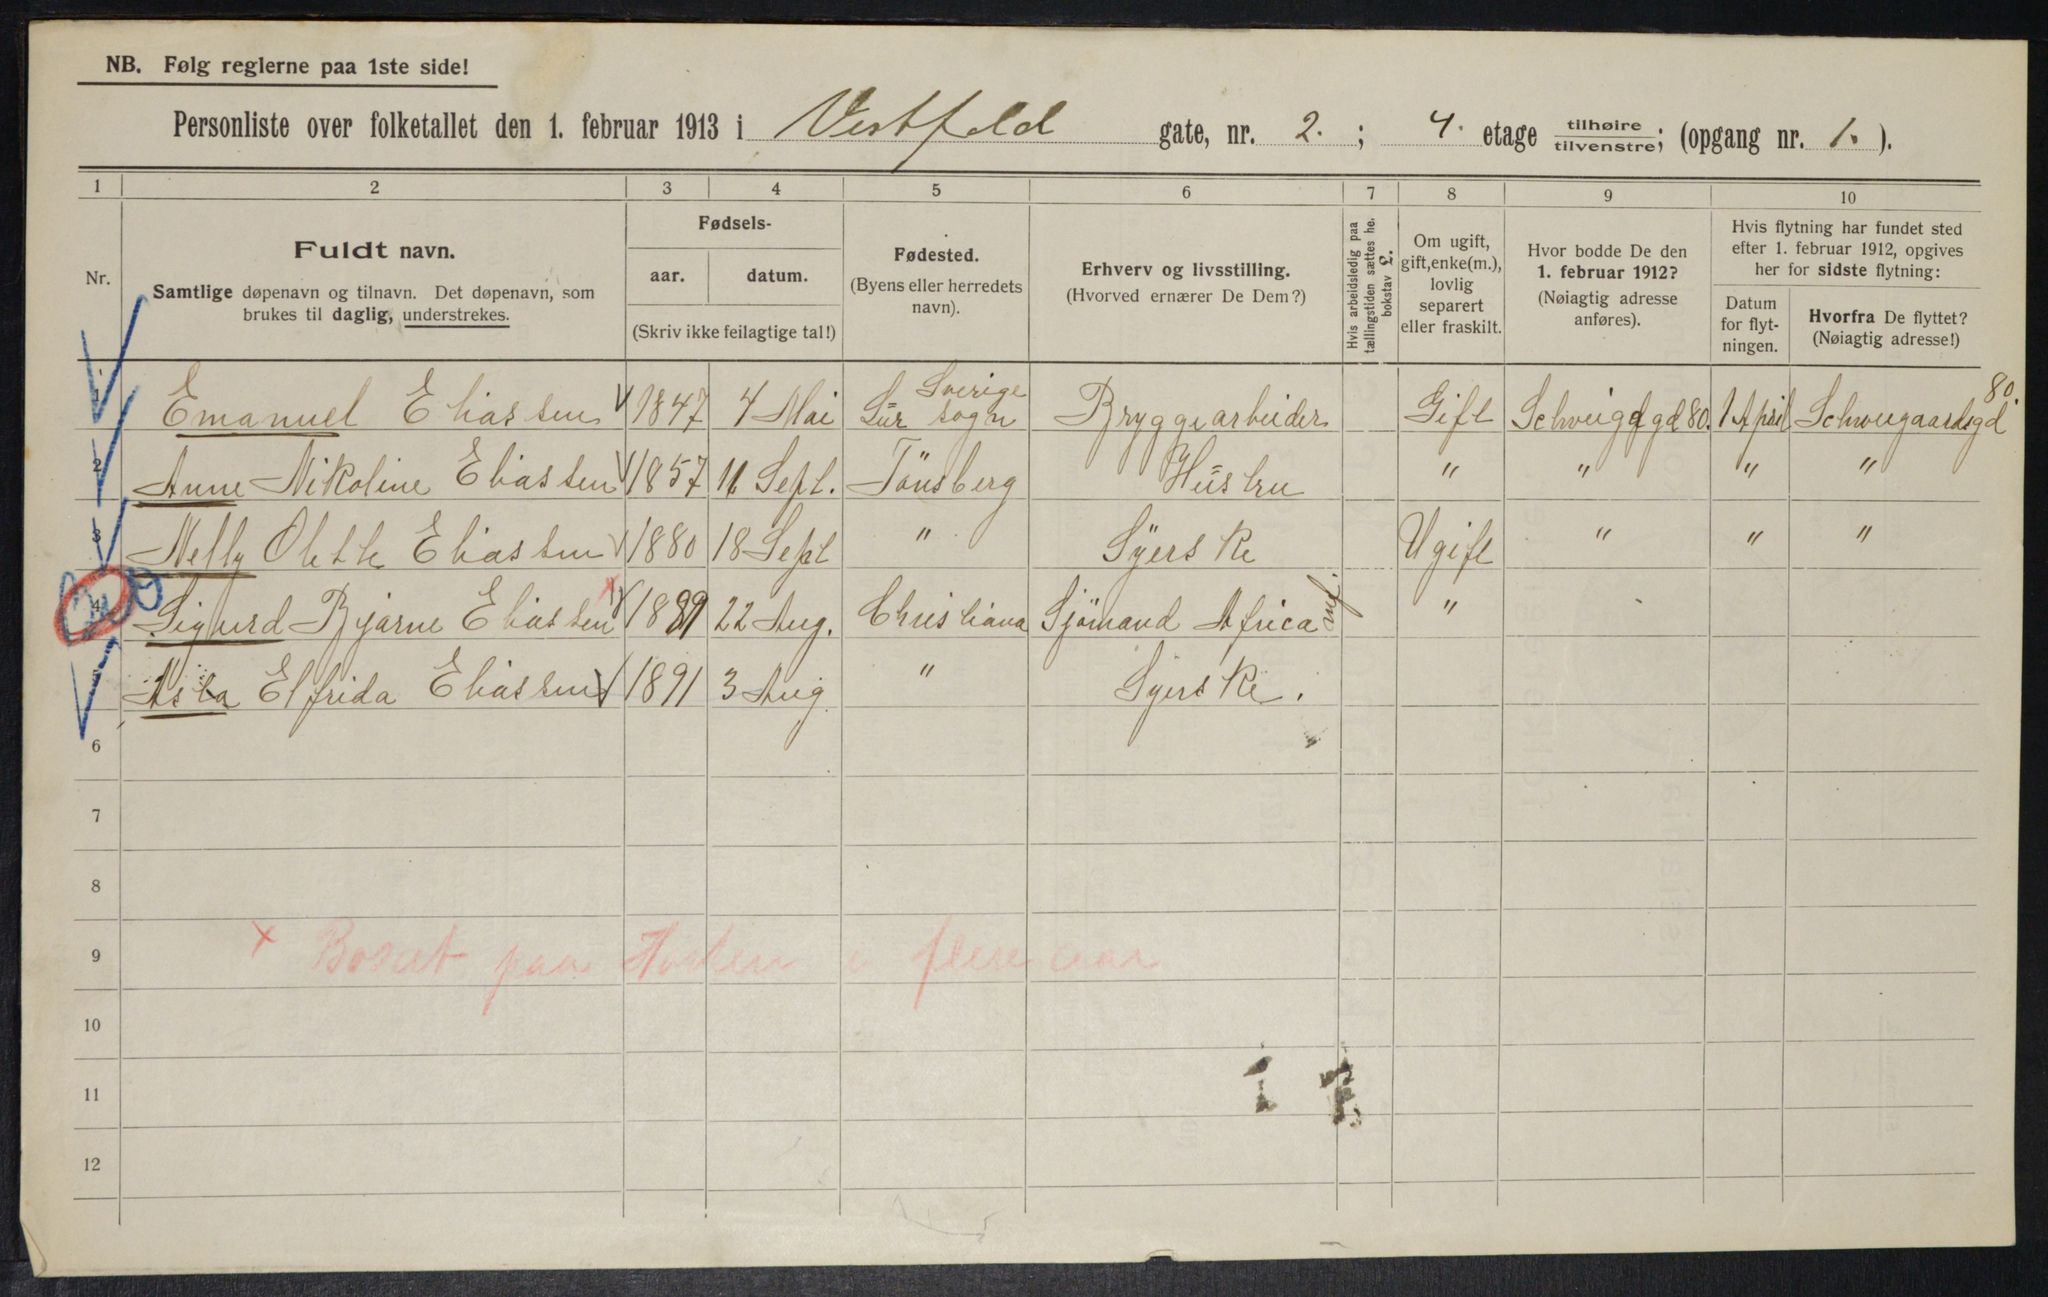 NB. Følg reglerne paa 1ste side!
Personliste over folketallet den 1. februar 1913 i Vestfold gate, nr. 2. ; 4. etage tilhøire tilvenstre; (opgang nr. 1. ).
1 2 3 4 5 6 7 8 9 10
Nr.
Fuldt navn.
Samtlige døpenavn og tilnavn. Det døpenavn, som
brukes til daglig, understrekes.
Fødsels-
aar. datum.
(Skriv ikke feilagtige tal!)
Fødested.
(Byens eller herredets
navn).
Erhverv og livsstilling.
(Hvorved ernærer De Dem?)
Hvis arbeidsledig paa
tællingstiden sættes her
bokstav L.
Om ugift,
gift, enke(m.),
lovlig
separert
eller fraskilt.
Hvor bodde De den
1. februar 1912?
(Nøiagtig adresse
anføres).
Hvis flytning har fundet sted
efter 1. februar 1912, opgives
her for sidste flytning:
Datum
for flyt-
ningen.
Hvorfra De flyttet?
(Nøiagtig adresse!)
1 Emanuel Eliassen 1847 4 Mai Sverige Sur sogn Bryggearbeider Gift Schveigdgd 80. 1 April Schveigaardsgd 80
2 Anne Nikoline Eliassen 1857 11 Sept. Tönsberg Hustru " " " "
3 Nelly Olette Eliassen 1880 18 Sept " Syerske Ugift " " "
4 Sigurd Bjarne Eliassen 1889 22 Aug. Christiana Sjömand Africa "
5 Asta Elfrida Eliassen 1891 3 Aug " Syerske.
6
7
8
9 x Bosat paa i flere aar
10
11
12